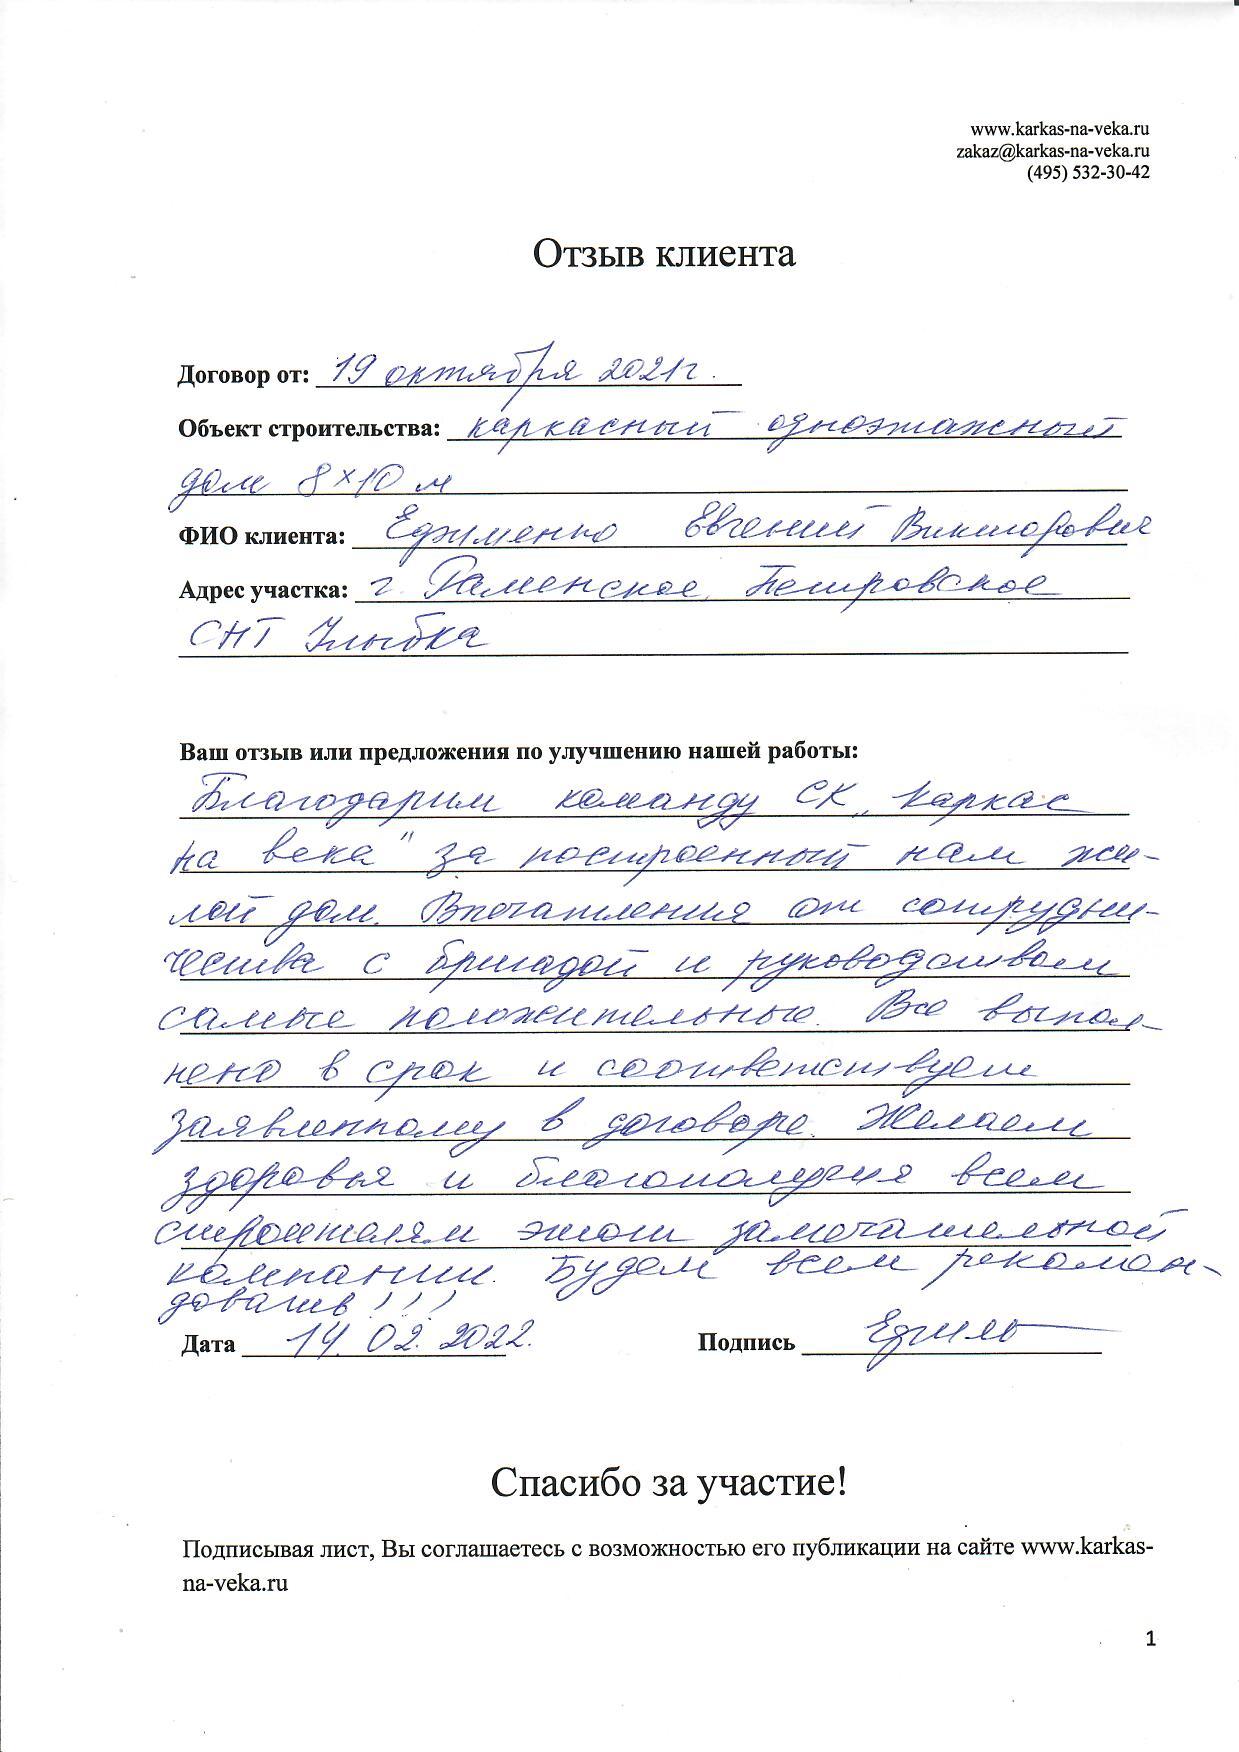 www.karkas-na-veka.ru
zakaz@karkas-na-veka.ru
(495) 532-30-42
Отзыв клиента
Договор от: 19 октября 2021г.
Объект строительства: каркасный одноэтажный
дом 8×10 м
ФИО клиента: Евгений Викторович
Адрес участка: г. Раменское, Петровское
СНТ Улыбка
Ваш отзыв или предложения по улучшению нашей работы:
Благодарим команду СК „Каркас
на века" за построенный нам жи-
лой дом. Впечатления от сотрудни-
чества с бригадой и руководством
самые положительные. Все выпол-
нено в срок и соответствует
заявленному в договоре. Желаем
здоровья и благополучия всем
строителям этой замечательной
компании. Будем всем рекомен-
довать!!!
Дата 14.02.2022. Подпись
Спасибо за участие!
Подписывая лист, Вы соглашаетесь с возможностью его публикации на сайте www.karkas-
na-veka.ru
1